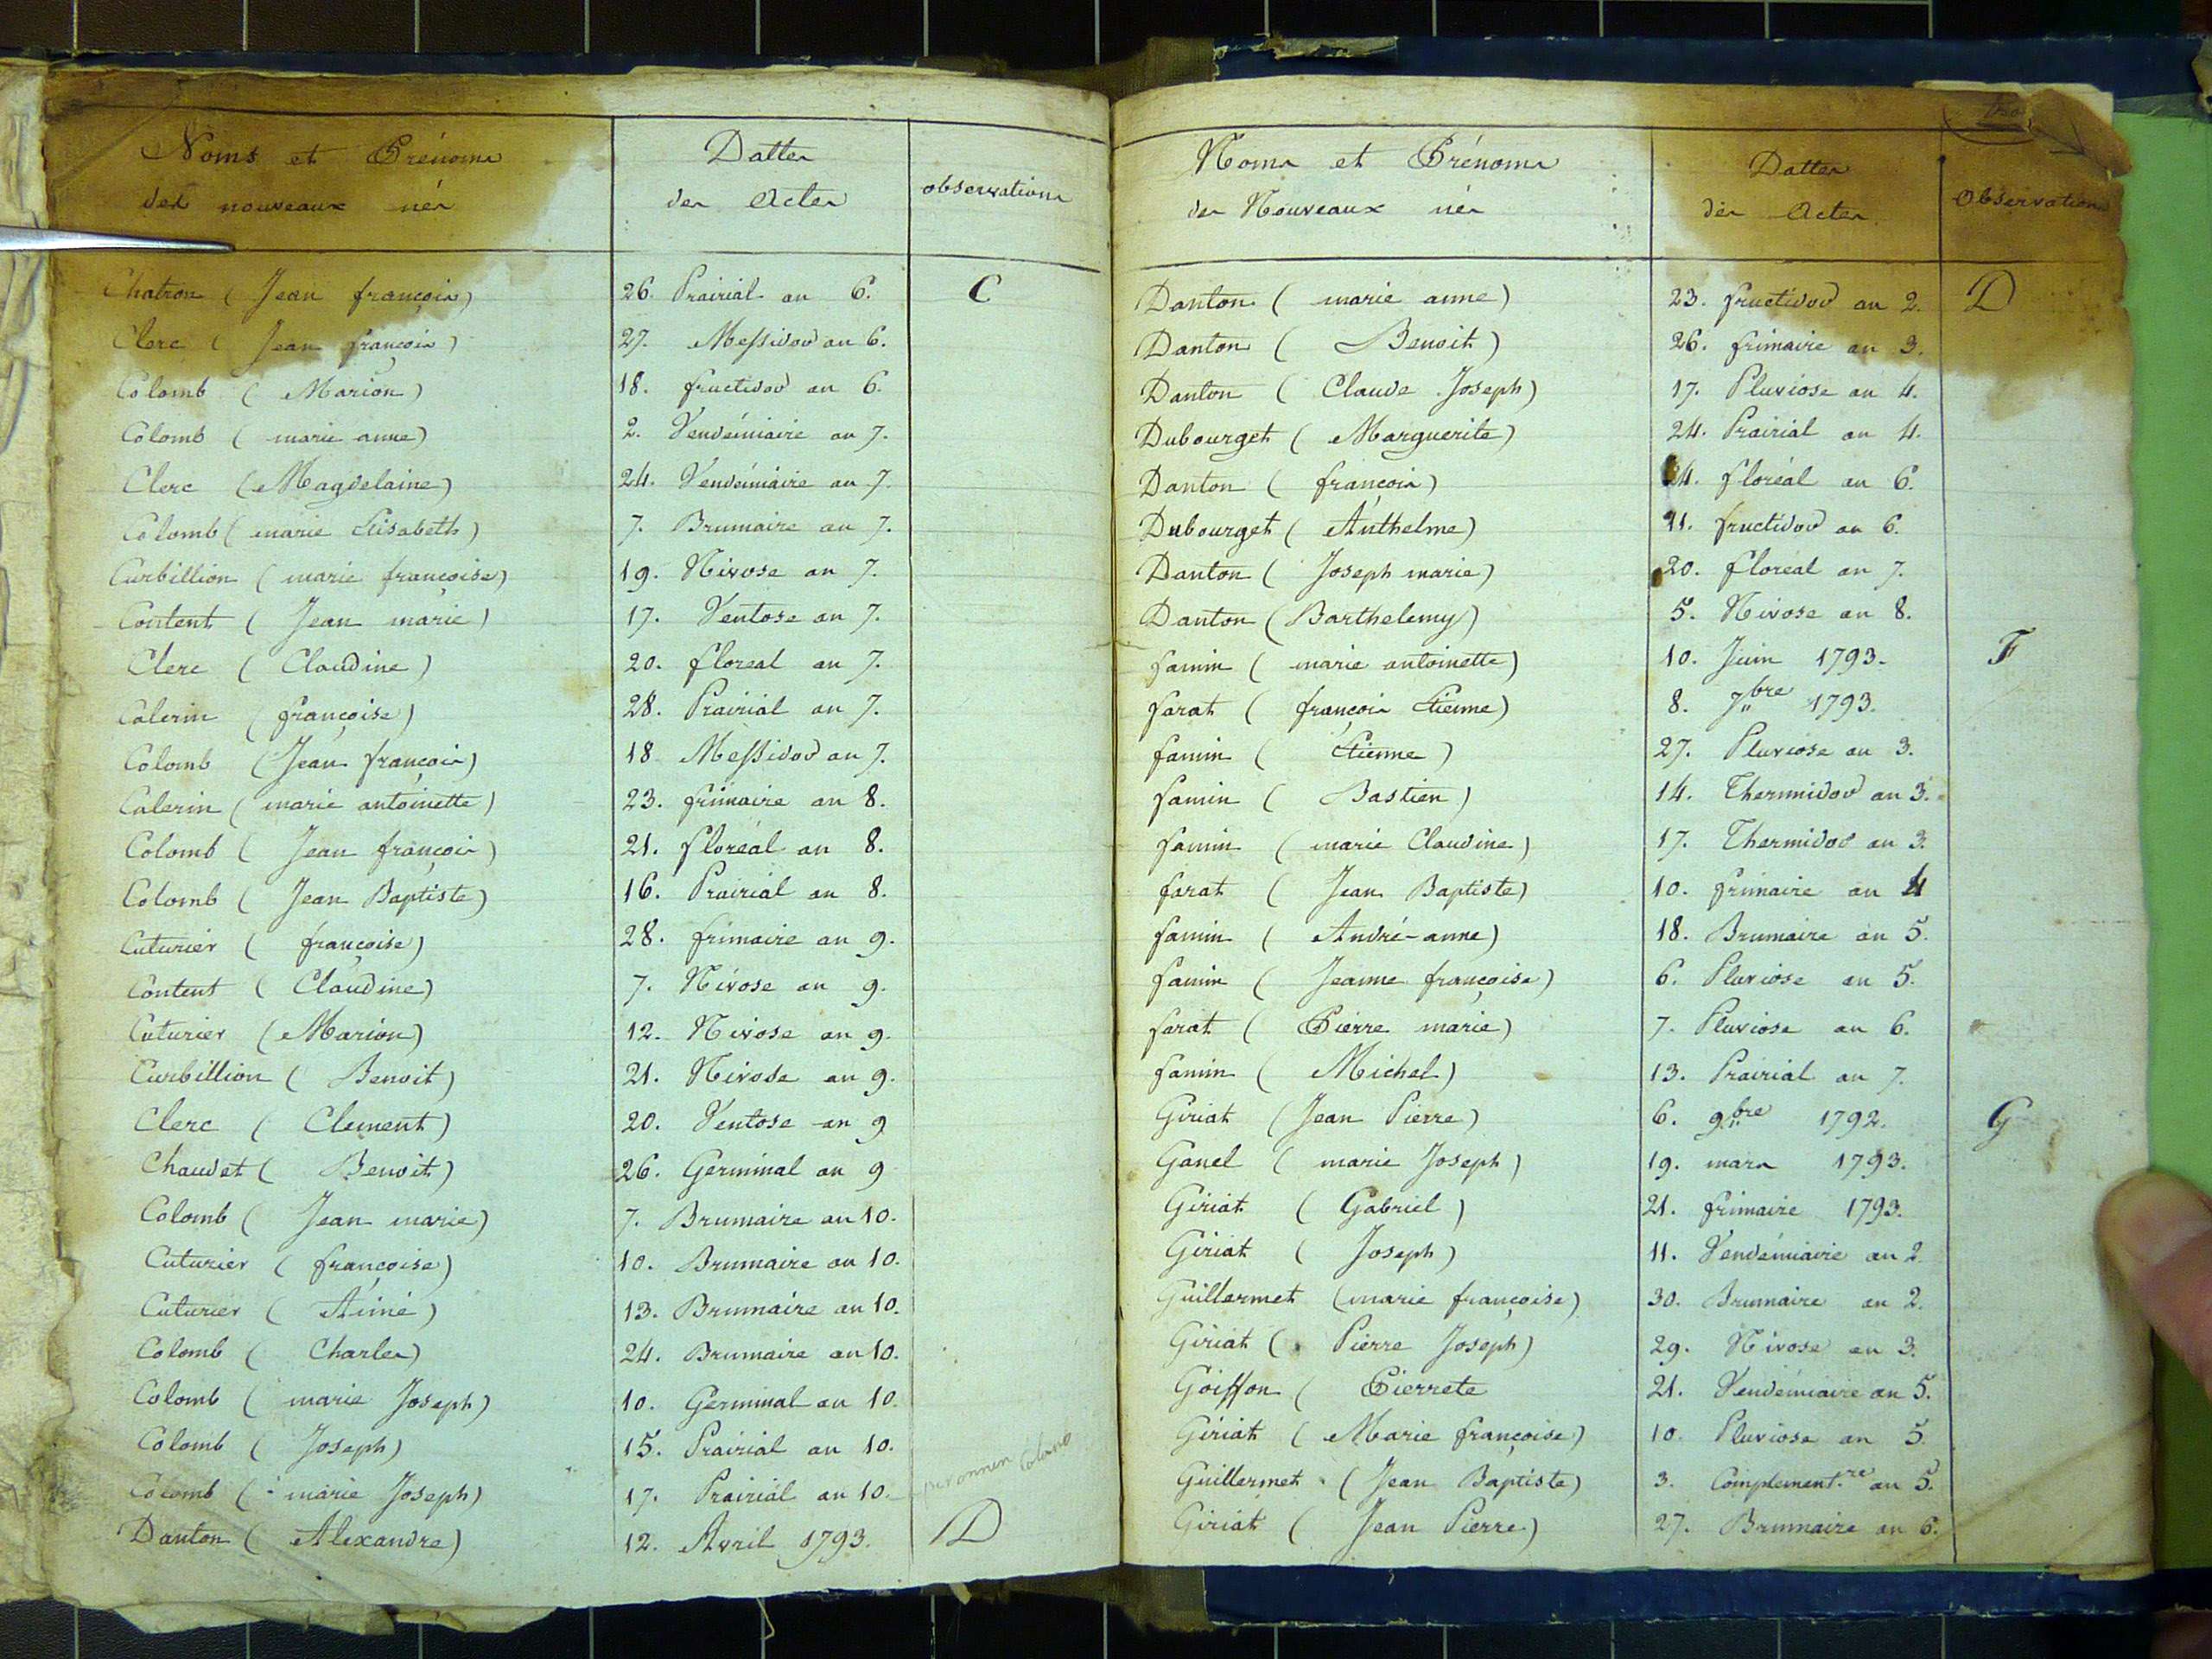 Noms et Prénoms
des nouveaux nés
Dattes
des Actes
observations
Chatron (Jean françois) 26. Prairial an 6. C
Clerc (Jean françois) 27. Messidor an 6.
Colomb (Marion) 18. fructidor an 6.
Colomb (marie anne) 2. Vendémiaire an 7.
Clerc (Magdelaine) 24. Vendémiaire an 7.
Colomb (marie Elisabeth) 7. Brumaire an 7.
Curbillion (marie françoise) 19. Nivose an 7.
Content (Jean marie) 17. Ventose an 7.
Clerc (Claudine) 20. floreal an 7.
Calerin (françoise) 28. Prairial an 7.
Colomb (Jean françois) 18 Messidor an 7.
Calerin (marie antoinette) 23. frimaire an 8.
Colomb (Jean françois) 21. floréal an 8.
Colomb (Jean Baptiste) 16. Prairial an 8.
Cuturier (françoise) 28. frimaire an 9.
Content (Claudine) 7. Nivose an 9.
Cuturier (Marion) 12. Nivose an 9.
Curbillion (Benoit) 21. Nivose an 9.
Clerc (Clement) 20. Ventose an 9
Chaudet (Benoit) 26. Germinal an 9
Colomb (Jean marie) 7. Brumaire an 10.
Cuturier (françoise) 10. Brumaire an 10.
Cuturier (Aimé) 13. Brumaire an 10.
Colomb (Charles) 24. Brumaire an 10.
Colomb (marie Joseph) 10. Germinal an 10.
Colomb (Joseph) 15. Prairial an 10.
Colomb (marie Joseph) 17. Prairial an 10.
Danton (Alexandre) 12. Avril 1793. D
Noms et Prénoms
des Nouveaux nés
Dattes
des Actes
Observations
Danton (marie anne) 23. fructidor an 2. D
Danton (Benoit) 26. frimaire an 3.
Danton (Claude Joseph) 17. Pluviose an 4.
Dubourget (Marguerite) 24. Prairial an 4.
Danton (françois) 24. floréal an 6.
Dubourget (Anthelme) 21. fructidor an 6.
Danton (Joseph marie) 20. floréal an 7.
Danton (Barthelemy) 5. Nivose an 8.
famin (marie antoinette) 10. Juin 1793. F
farat (françois Etienne) 8. 7bre 1793.
famin (Etienne) 27. Pluviose an 3.
famin (Bastien) 14. Thermidor an 3.
famin (marie Claudine) 17. Thermidor an 3.
farat (Jean Baptiste) 10. frimaire an 4
famin (André-anne) 18. Brumaire an 5.
famin (Jeanne françoise) 6. Pluviose an 5.
farat (Pierre marie) 7. Pluviose an 6.
famin (Michel) 13. Prairial an 7.
Giriat (Jean Pierre) 6. 9bre 1792. G
Ganel (marie Joseph) 19. mars 1793.
Giriat (Gabriel) 21. frimaire 1793.
Giriat (Joseph) 11. Vendémiaire an 2
Guillermet (marie françoise) 30. Brumaire an 2.
Giriat (Pierre Joseph) 29. Nivose an 3.
Goiffon (Pierrete 21. Vendémiaire an 5.
Giriat (Marie françoise) 10. Pluviose an 5.
Guillermet (Jean Baptiste) 3. Complement.re an 5.
Giriat (Jean Pierre) 27. Brumaire an 6.